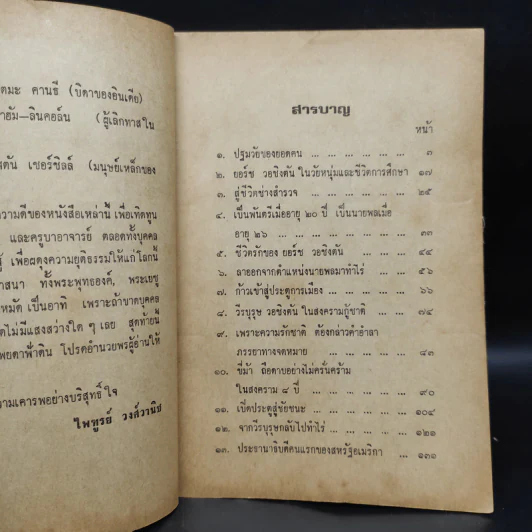 ตมะ คานธี (บิดาของอินเดีย)
าฮัม—ลินคอล์น (ผู้เลิกทาสใน
ตัน เชอร์ชิลล์ (มนุษย์เหล็กของ
วามดีของหนังสือเหล่านี้ เพื่อเทิดทูน
และครูบาอาจารย์ ตลอดทั้งบุคคล
รู้ เพื่อผดุงความยุตธรรมให้แก่โลกนี้
าสนา ทั้งพระพุทธองค์, พระเยซู
หมัด เป็นอาทิ เพราะถ้าขาดบุคคล
ตไม่มีแสงสว่างใด ๆ เลย สุดท้ายนี้
พยดาฟ้าดิน โปรดอำนวยพรผู้อ่านให้
วามเคารพอย่างบริสุทธิ์ใจ
ไพฑูรย์ วงศ์วานิช
สารบาญ
หน้า
๑. ปฐมวัยของยอดคน ... ... ... ... ... ๓
๒. ยอร์ช วอชิงตัน ในวัยหนุ่มและชีวิตการศึกษา ๑๗
๓. สู่ชีวิตช่างสำรวจ ... ... ... ... ... ๒๕
๔. เป็นพันตรีเมื่ออายุ ๒๐ ปี เป็นนายพลเมื่อ
อายุ ๒๖ ... ... ... ... ... ... ๓๓
๕. ชีวิตรักของ ยอร์ช วอชิงตัน ... ... ... ๔๔
๖. ลาออกจากตำแหน่งนายพลมาทำไร่ ... ... ๕๖
๗. ก้าวเข้าสู่ประตูการเมือง ... ... ... ... ๖๖
๘. วีรบุรุษ วอชิงตัน ในสงครามกู้ชาติ ... ... ๗๔
๙. เพราะความรักชาติ ต้องกล่าวคำอำลา
ภรรยาทางจดหมาย ... ... ... ... ๘๓
๑๐. ขี่ม้า ถือดาบอย่างไม่ครั่นคร้าม
ในสงคราม ๘ ปี ... ... ... ... ๙๐
๑๑. เปิดประตูสู่ชัยชนะ ... ... ... ... ๑๐๔
๑๒. จากวีรบุรุษกลับไปทำไร่ ... ... ... ๑๒๑
๑๓. ประธานาธิบดีคนแรกของสหรัฐอเมริกา ... ๑๓๑